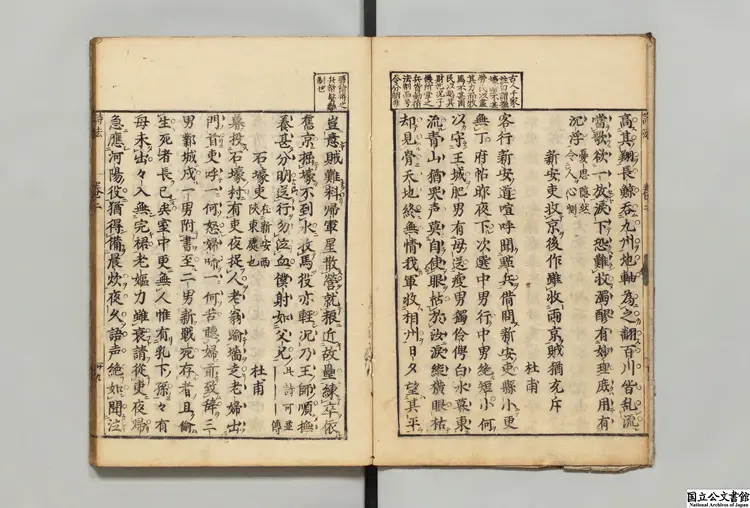 高其翔長鯨吞九州地軸為之翻百川皆乱流
當歌欲一放淚下恐難收濁醪有妙理庶用
沉浮 憂思隱然令人心惻
新安吏 收京後作雖收兩京賊猶充斥
杜甫
客行新安道喧呼聞點兵借問新安吏縣小更
無丁府帖昨夜下次選中男行中男絶短小何
以守王城肥男有母送瘦男獨伶俜白水暮東
流青山猶哭声莫自使眼枯收汝淚縱横眼枯
却見骨天地終無情我軍收相州日夕望其平
豈意賊難料帰軍星散營就粮近故壘練卒依
舊京掘壕不到水牧馬役亦軽况乃王師順撫
養甚分明送行勿泣血僕射如父兄 此詩可並傳
石壕吏 在新安西陝東處也 杜甫
暮投石壕村有吏夜捉人老翁踰墻走老婦出
門首吏呼一何怒婦啼一何苦聽婦前致辞三
男鄴城戍一男附書至二男新戦死存者且偷
生死者長已矣室中更無人惟有乳下孫々有
母未出々入無完裙老嫗力雖衰請從吏夜帰
急應河陽役猶得備晨炊夜久語声絶如聞泣
国立公文書館
National Archives of Japan